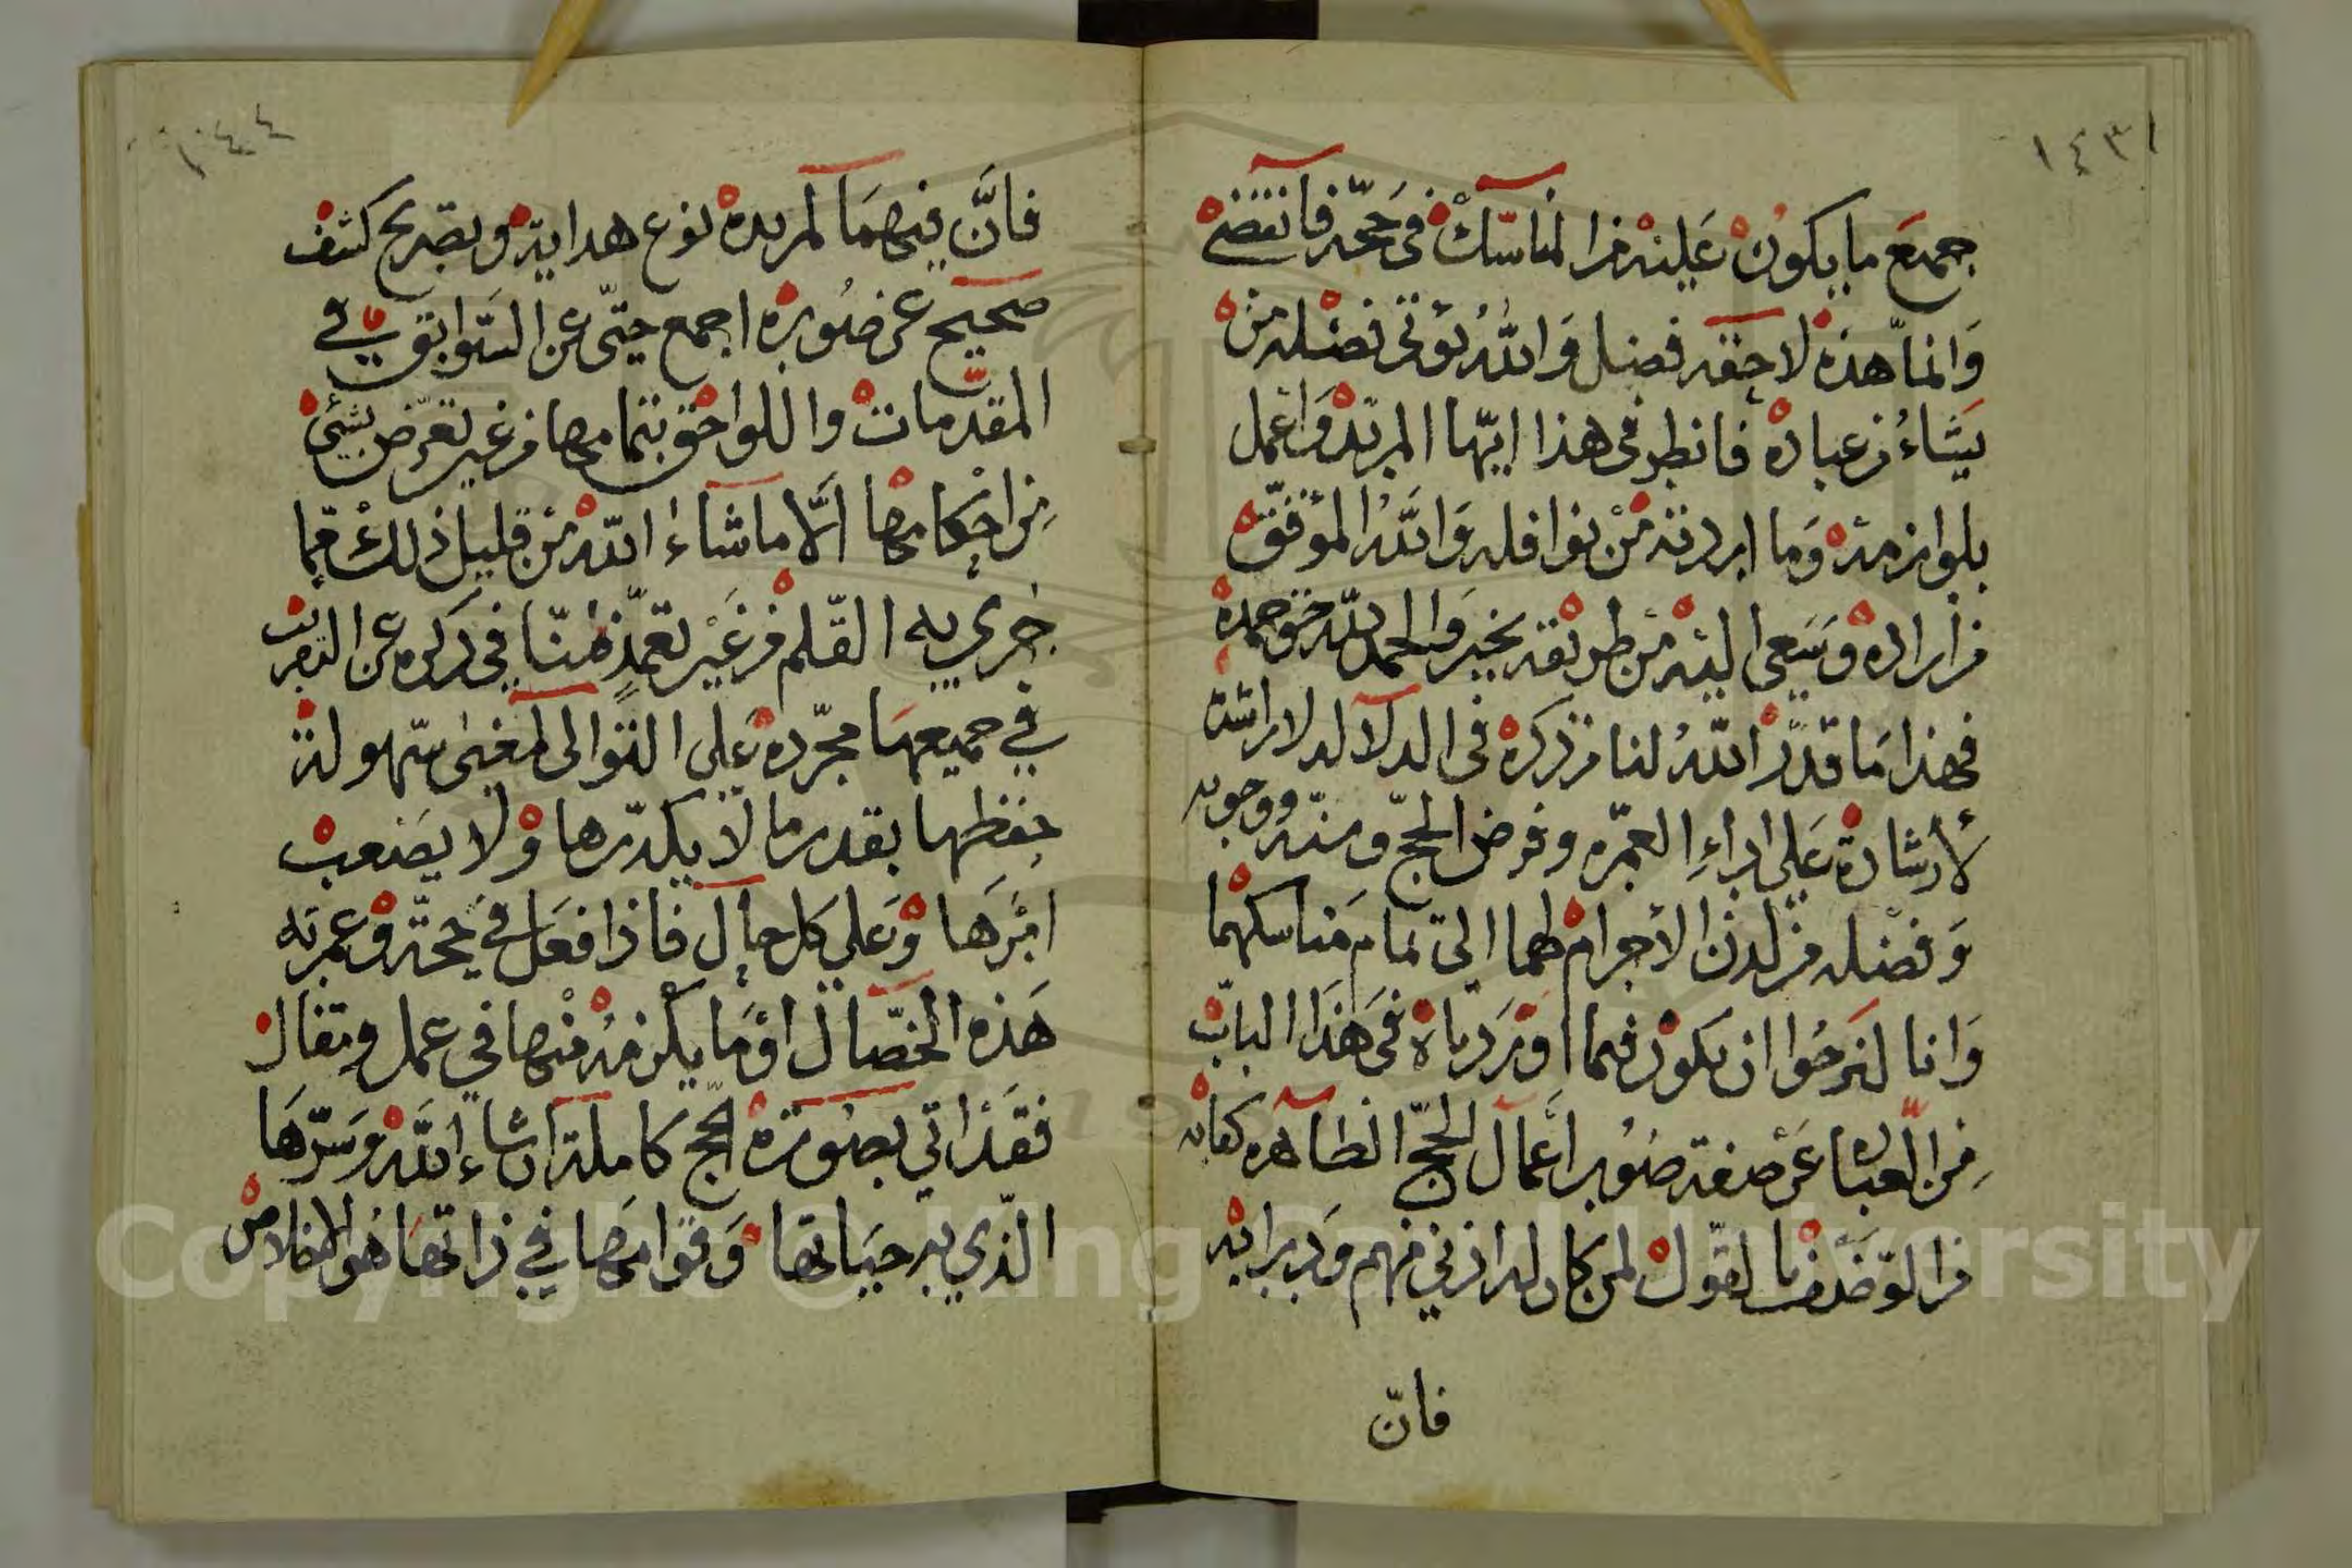 ١٤٣١
جميع ما يكون عليه من المناسك في حجه فانقضى
وانما هذه لاحقه فضل والله يؤتي فضله من
يشاء من عباده فانظر في هذا ايها المريد واعمل
بلوازمه وما اردته من نوافله والله الموفق
من اراده وسعى اليه من طريقه بخير والحمد لله حق حمده
فهذا ما قدر الله لنا من ذكره في الدلالة الراشدة
لارشاده على اداء العمره وفرض الحج ومنه ووجوبه
وفضله من لدن الاحرام لهما الى تمام مناسكهما
وانا لنرجوا ان يكون فيما اوردناه في هذا الباب
من العباره عن صفة صور اعمال الحج الظاهره كفايه
من التوضيف بالقول لمن كان له اذني فهم ودرايه
فانّ
١٤٤
فانّ فيهما لمريده نوع هداية وبصريح كشف
صحيح عن صوره اجمع حتى عن السوابق في
المقدمات واللواحق بتمامها من غير تعرض بشيء
من احكامها الّا ما شاء الله من قليل ذلك مما
جرى به القلم من غير تعمد هنا في ذكره عن
في جميعها مجرده على التوالي لمعنى سهولة
حفظها بقدر ما لا يكدرها ولا يصعب
امرها وعلى كل حال فاذا فعل في حجة وعمرته
هذه الخصال او ما يلزمه منها في عمل ومقال
فقد اتي بصورة الحج كاملة ان شاء الله وسرها
الذي به حياتها وقوامها في ذاتها هو الاخلاص
Copyright © King Saud University